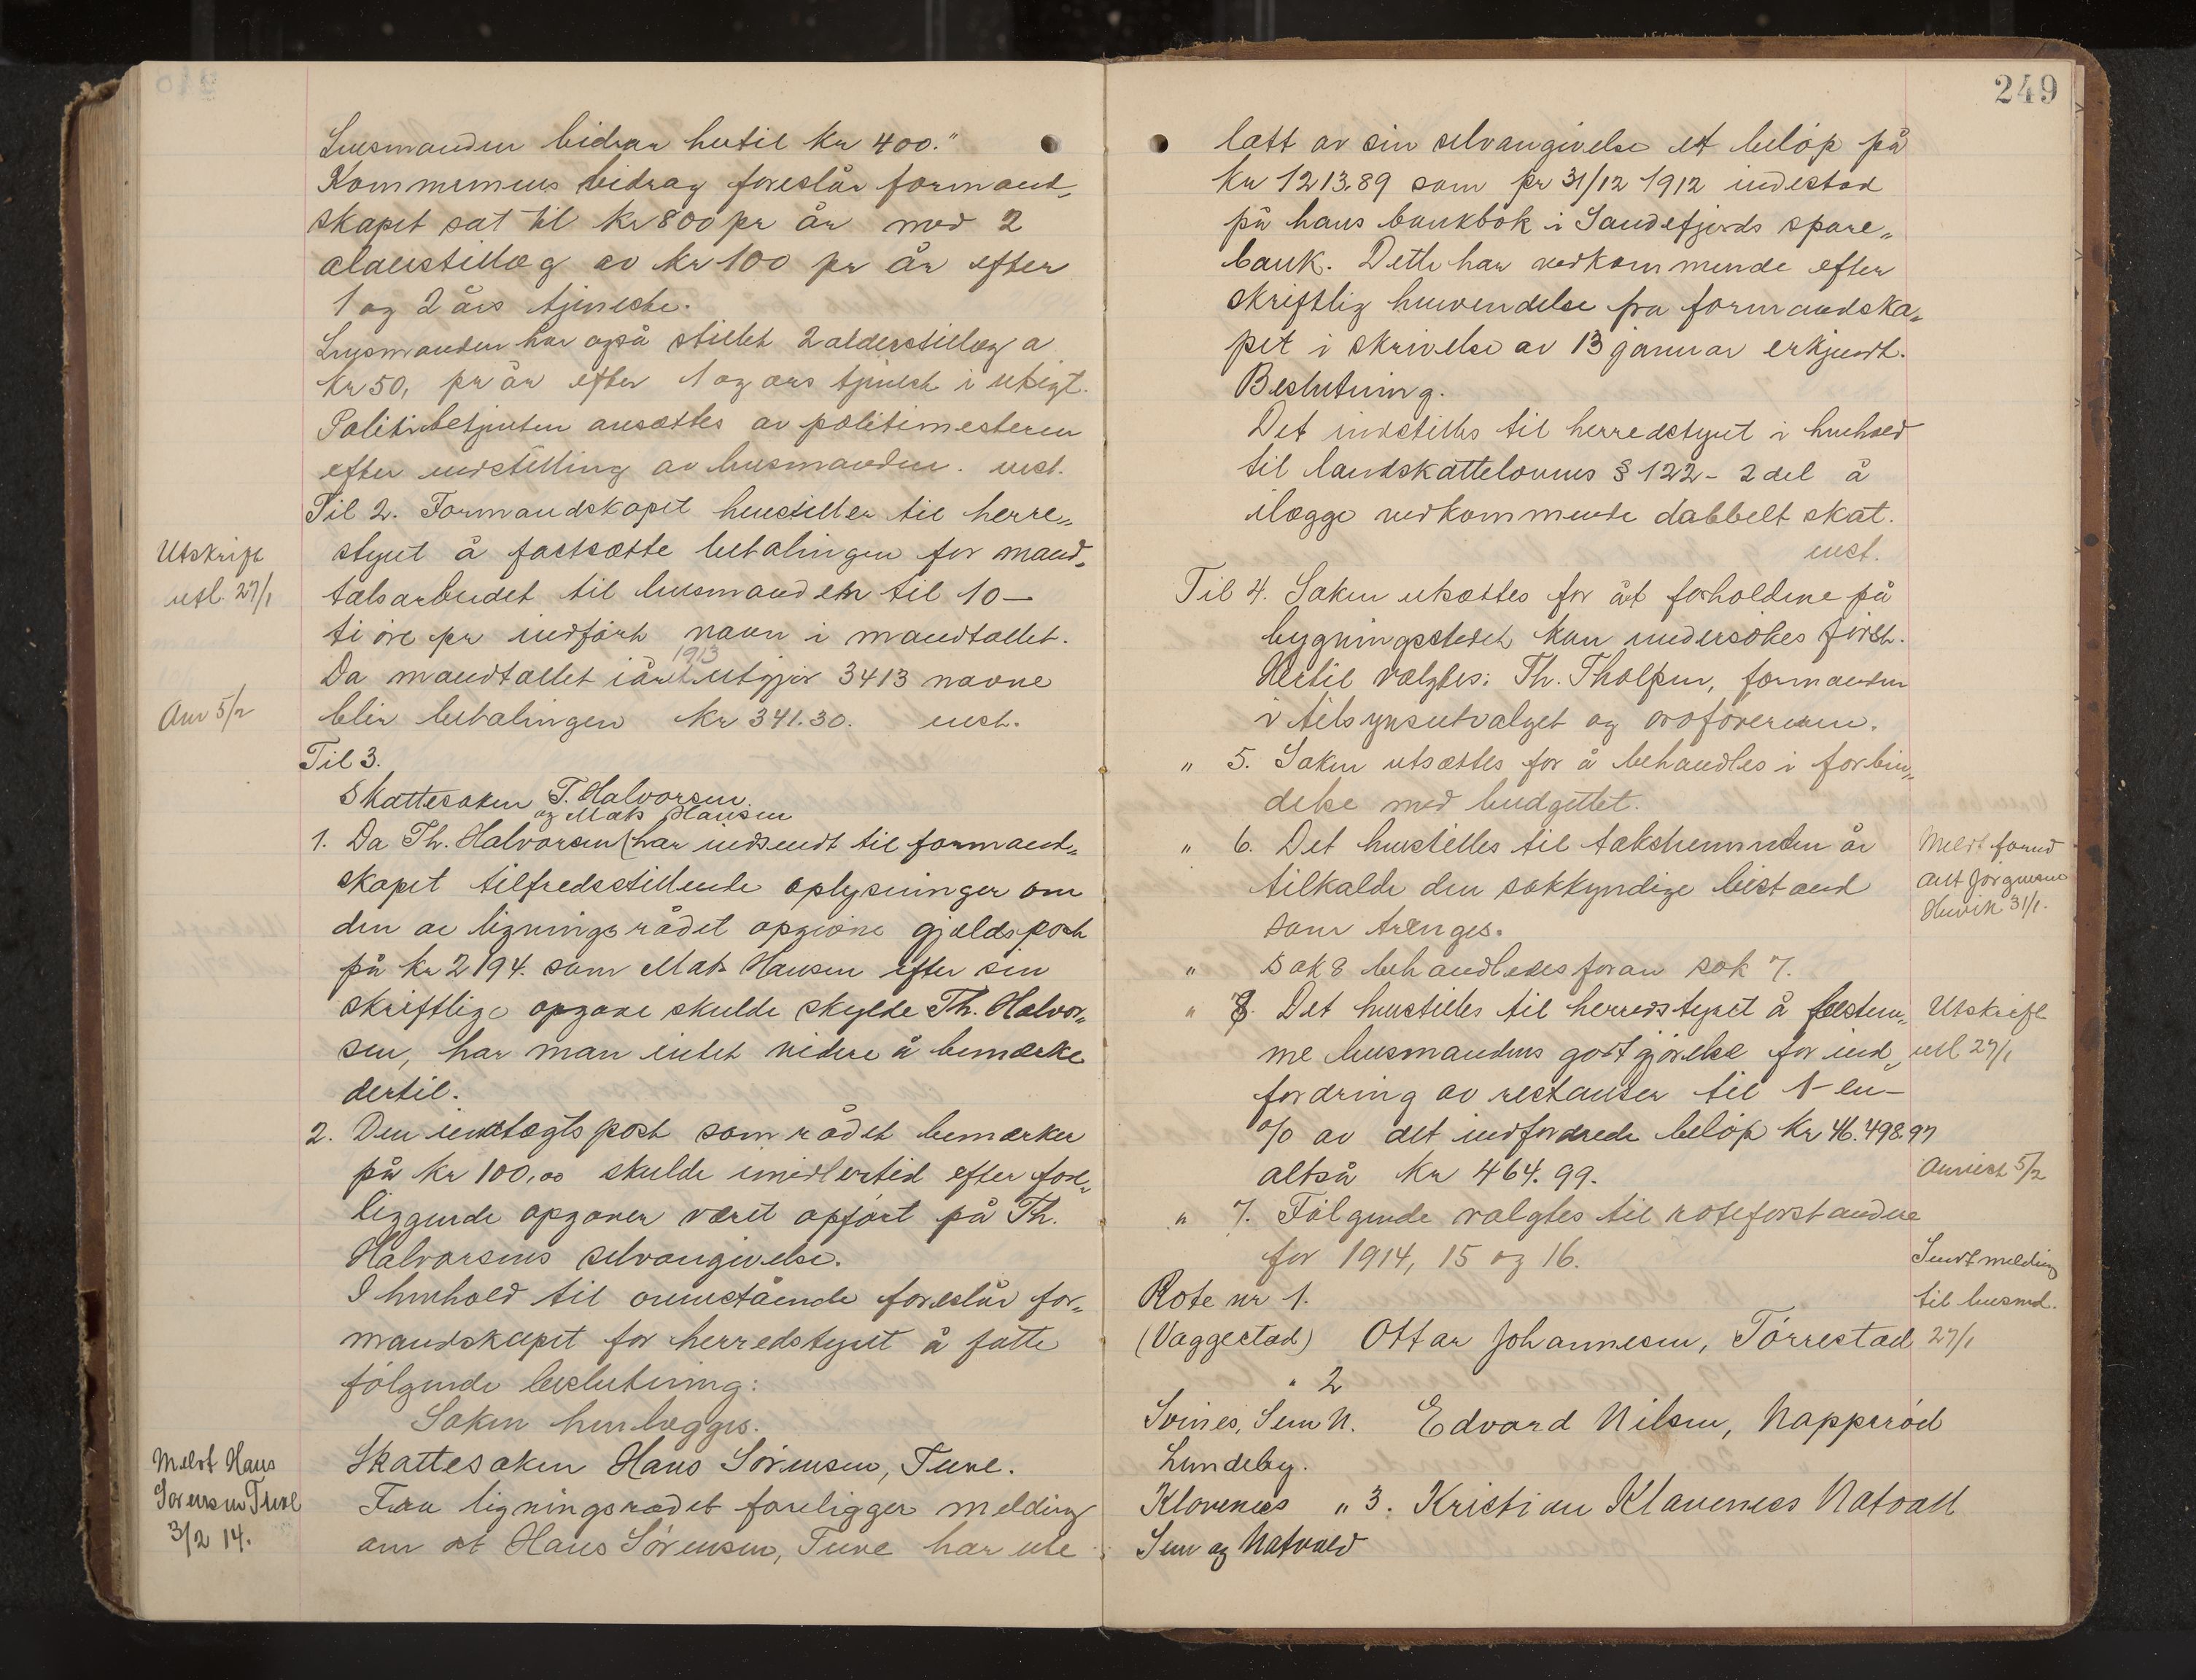 Lensmanden bidrar hertil kr 400."
Kommunens bidrag foreslår formand-
skapet sat til kr 800 pr år med 2
alderstillæg av kr 100 pr år efter
1 og 2 års tjeneste.
Lensmanden har også stillet 2 alderstillæg a
kr 50, pr år efter 1 og  års tjeneste i utsigt.
Politibetjenten ansættes av politimesteren
efter indstilling av lensmanden. enst.
Til 2. Formandskapet henstiller til herre-
Utskrift
styret å fastsætte betalingen for mand-
utf. 27/1
talsarbeidet til lensmanden til 10 —
ti øre pr indført navn i mandtallet.
1913
Da mandtallet iåret utgjør 3413 navne
Anv 5/2
blir betalingen kr 341.30. enst.
Til 3.
Skattesaken T. Halvorsen
og Mats Hansen
1. Da Th. Halvorsen har indsendt til formand-
skapet tilfredsstillende oplysninger om
den av ligningsrådet opgivne gjældspost
på kr 2194. som Mats Hansen efter sin
skriftlige opgave skulde skylde Th. Halvor-
sen, har man intet videre å bemærke
dertil.
2. Den indtægtspost som rådet bemærker
på kr 100,00 skulde imidlertid efter fore-
liggende opgaver været opført på Th.
Halvorsens selvangivelse.
I henhold til ovenstående foreslår for-
mandskapet for herredstyret å fatte
følgende beslutning:
Saken henlægges.
Meldt Hans
Sørensen Tuve
3/2 14.
Skattesaken Hans Sørensen, Tuve.
Fra ligningsrådet foreligger melding
om at Hans Sørensen, Tuve har ute
249
latt av sin selvangivelse et beløp på
kr 1213,89 som pr 31/12 1912 indestod
på hans bankbok i Sandefjords spare-
bank. Dette har vedkommende efter
skriftlig henvendelse fra formandska-
pet i skrivelse av 13 januar erkjendt.
Beslutning.
Det indstilles til herredstyret i henhold
til landskattelovens § 122 - 2 del å
ilægge vedkommende dobbelt skat.
enst.
Til 4. Saken utsættes for åt forholdene på
bygningsstedet kan undersøkes først.
Hertil valgtes: Th. Tholfsen, formanden
i tilsynsutvalget og ordføreren.
" 5. Saken utsættes for å behandles i forbin-
delse med budgettet.
" 6. Det henstilles til takstnemnden år
tilkalde den sakkyndige bistand
som trænges.
Meldt formd
Ant Jørgensen
Huvik 31/1.
" Sak 8 behandledes foran sak 7.
" 8. Det henstilles til herredstyret å bestem-
me lensmandens godtgjørelse for ind-
fordring av restanser til 1 - en -
% av det indfordrede beløp kr 46.498.97
altså kr 464.99.
Utskrift
utf 27/1
Anvist 5/2
" 7. Følgende valgtes til roteforstandere
for 1914, 15 og 16.
Sendt melding
til lensmd.
27/1
Rote nr 1.
(Vaggestad) Ottar Johannesen, Tørrestad
" 2
Svines, Sem N. Edvard Nilsen, Napperød
Lundeby.
Klavenes " 3. Kristian Klavenes Natvall
Sem og Natvald